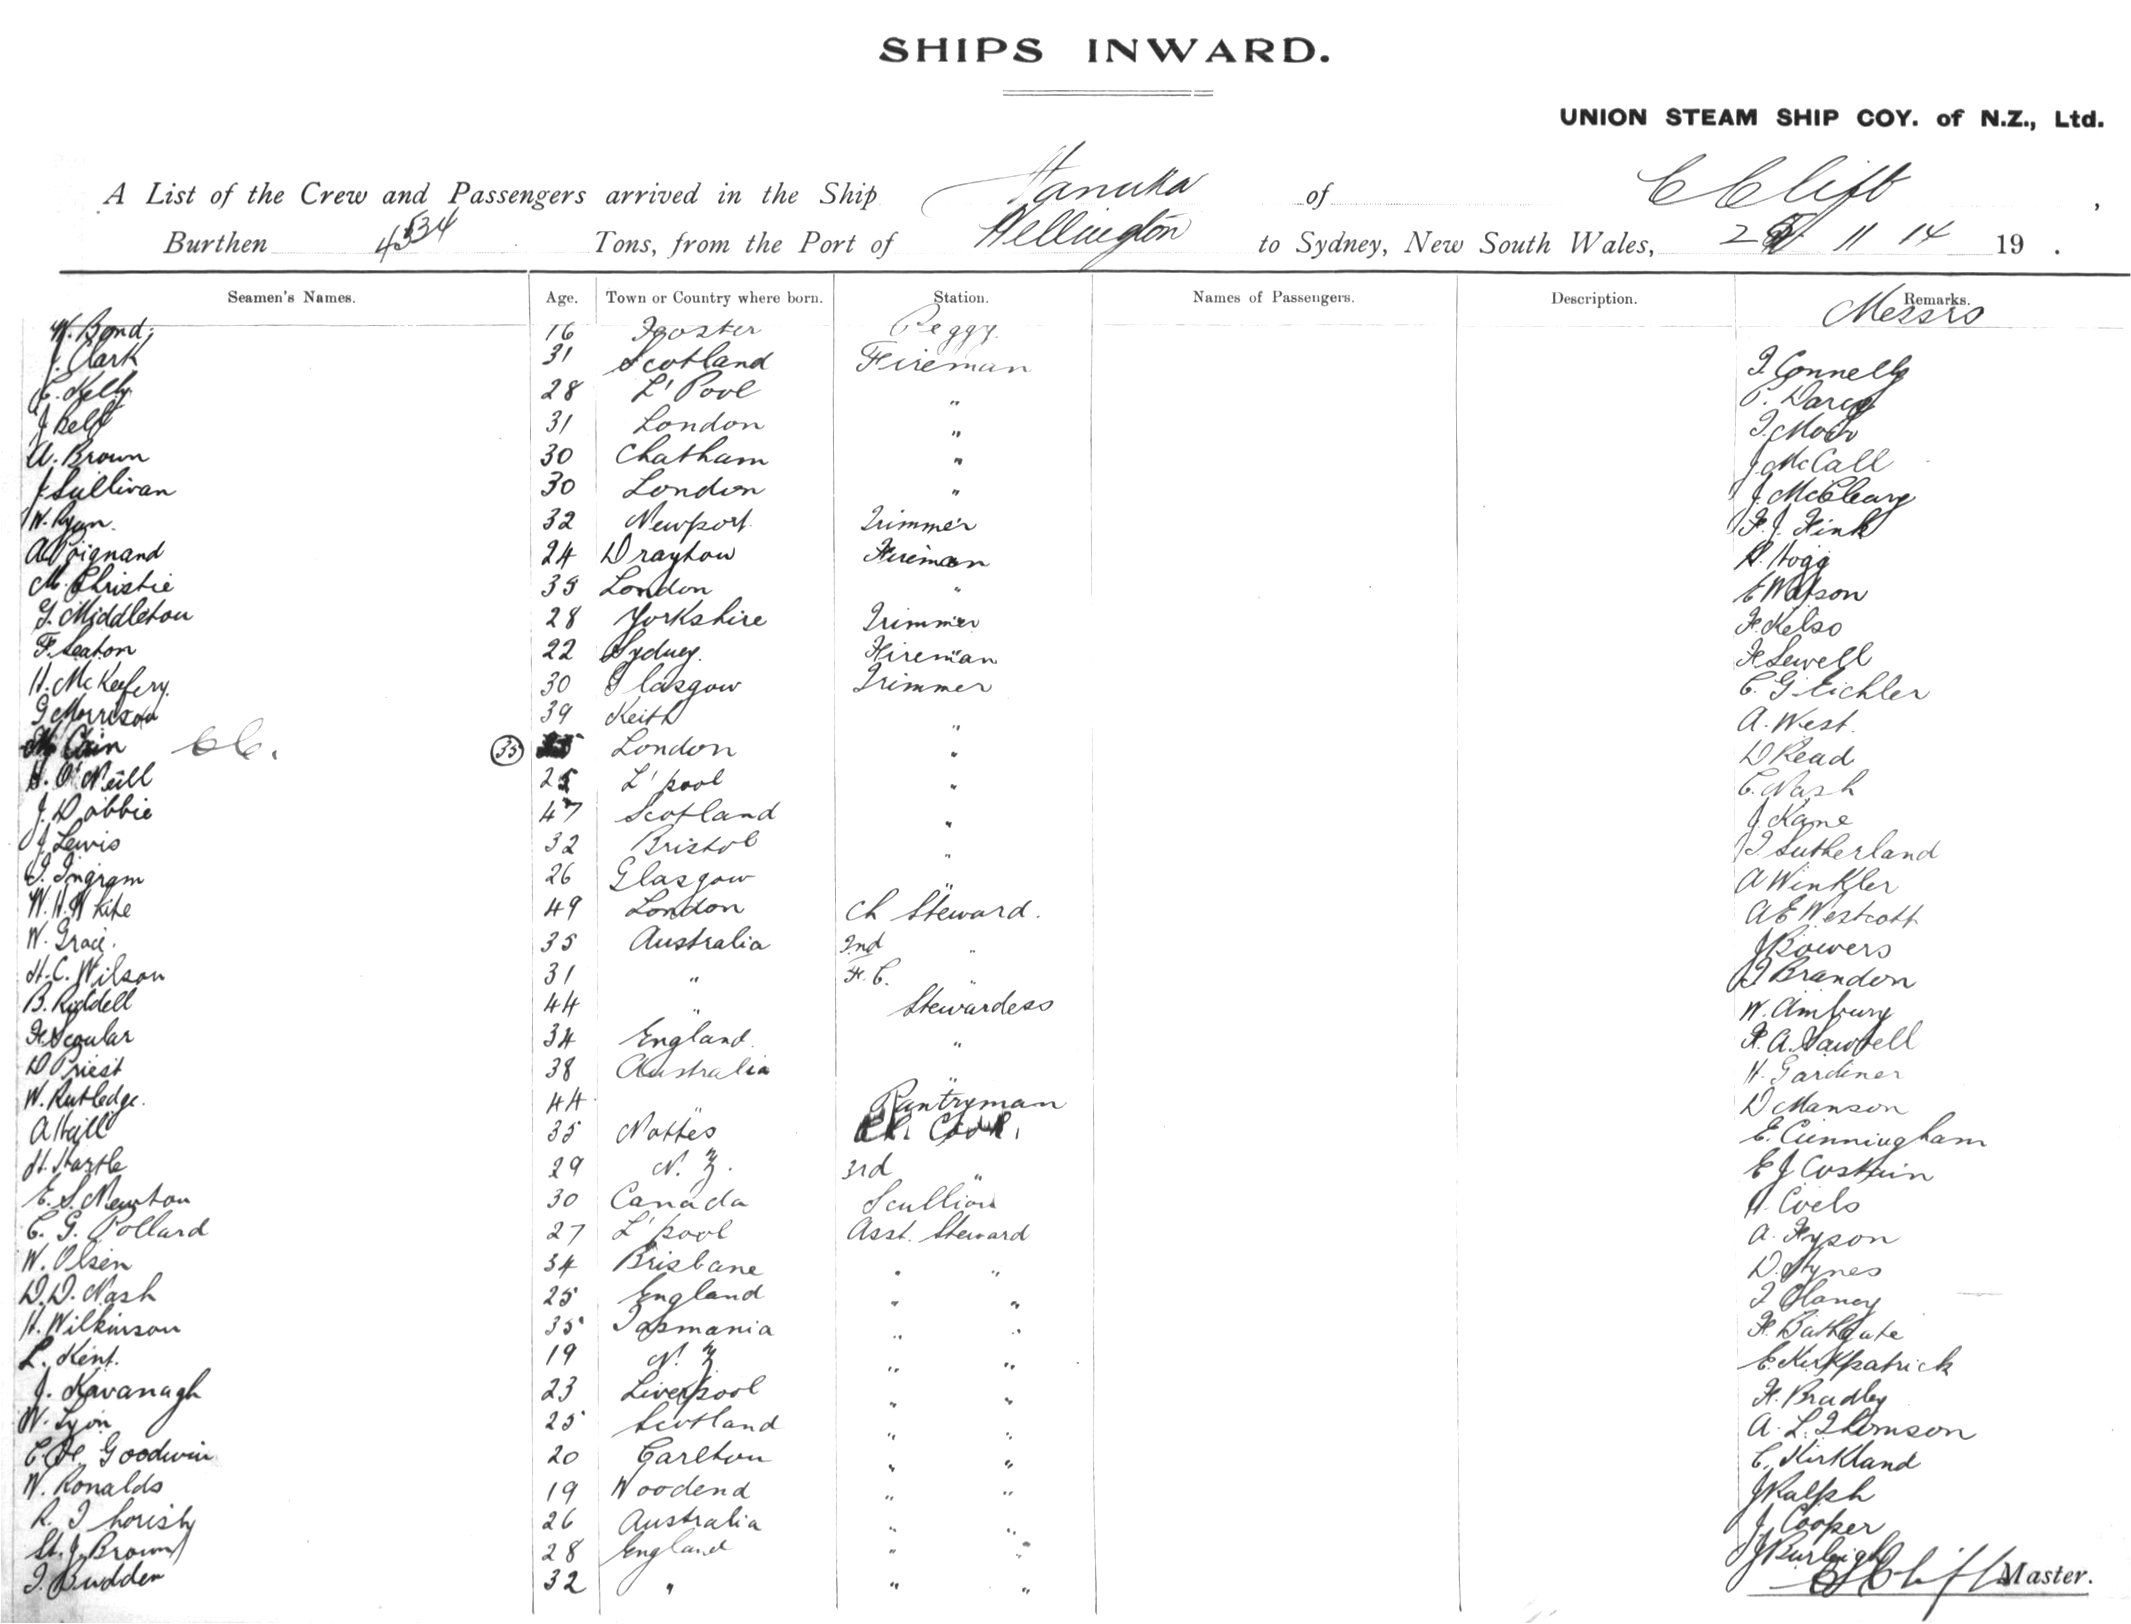 SHIPS INWARD.
UNION STEAM SHIP COY. of N.Z., Ltd.
A List of the Crew and Passengers arrived in the Ship Manuka of C Clift,
Burthen 4534 Tons, from the Port of Wellington to Sydney, New South Wales, 11 14 19 .
Seamen's Names. Age. Town or Country where born. Station. Names of Passengers. Description. Remarks.
Messrs
W. Bond 16 Foster Peggy.
J. Clark 31 Scotland Fireman T Connelly
C. Kelly 28 L'Pool " P. Darcy
J Belt 31 London " T. Moir
A. Brown 30 Chatham " J McCall
J Sullivan 30 London " J. McCleary
W. Ryan. 32 Newport Trimmer F. J. Fink
A Poignand 24 Drayton Fireman R. Hogg
M. Christie 35 London " E Watson
G. Middleton 28 Yorkshire Trimmer F. Kelso
F. Seaton 22 Sydney. Fireman F Sewell
H. McKeefery. 30 Glasgow Trimmer C. G Eichler
G Morrison 39 Keith " A. West.
Cain CC. 35 London " D Read
H. O'Neill 25 L'pool " C. Nash
J. Dobbie 47 Scotland " J. Kane
J Lewis 32 Bristol " T Sutherland
T. Ingram 26 Glasgow " A Winkler
W. H. White 49 London Ch Steward. A E Westcott
W. Grace. 35 Australia 2nd " J Bowers
H. C. Wilson 31 " F. C. " T Brandon
B. Riddell 44 " Stewardess W. Ambury
F. Scoular 34 England " F. A. Sawtell
D Priest 38 Australia " H. Gardiner
W. Rutledge. 44 " Pantryman D Manson
A Hall 35 Notties Ch. Cook. E. Cunningham
H. Hartle 29 N. Z. 3rd " E J Costain
E. S. Newton 30 Canada Scullion H. Coels
C. G. Pollard 27 L'pool Asst. Steward A. Fyson
W. Olsen 34 Brisbane " " D. Hynes
D. D. Nash 25 England " " T Clancy
H. Wilkinson 35 Tasmania " " F. Bathgate
L. Kent. 19 N. Z " " E. Kirkpatrick
J. Kavanagh 23 Liverpool " " F. Bradley
W. Lyon 25 Scotland " " A. L. Thomson
C. H. Goodwin 20 Carlton " " C. Kirkland
W. Ronalds 19 Woodend " " J Ralph
R. Thorisby 26 Australia " " J. Cooper
St. J. Brown 28 England " " J Burleigh
T. Budden 32 " " " C Clift Master.